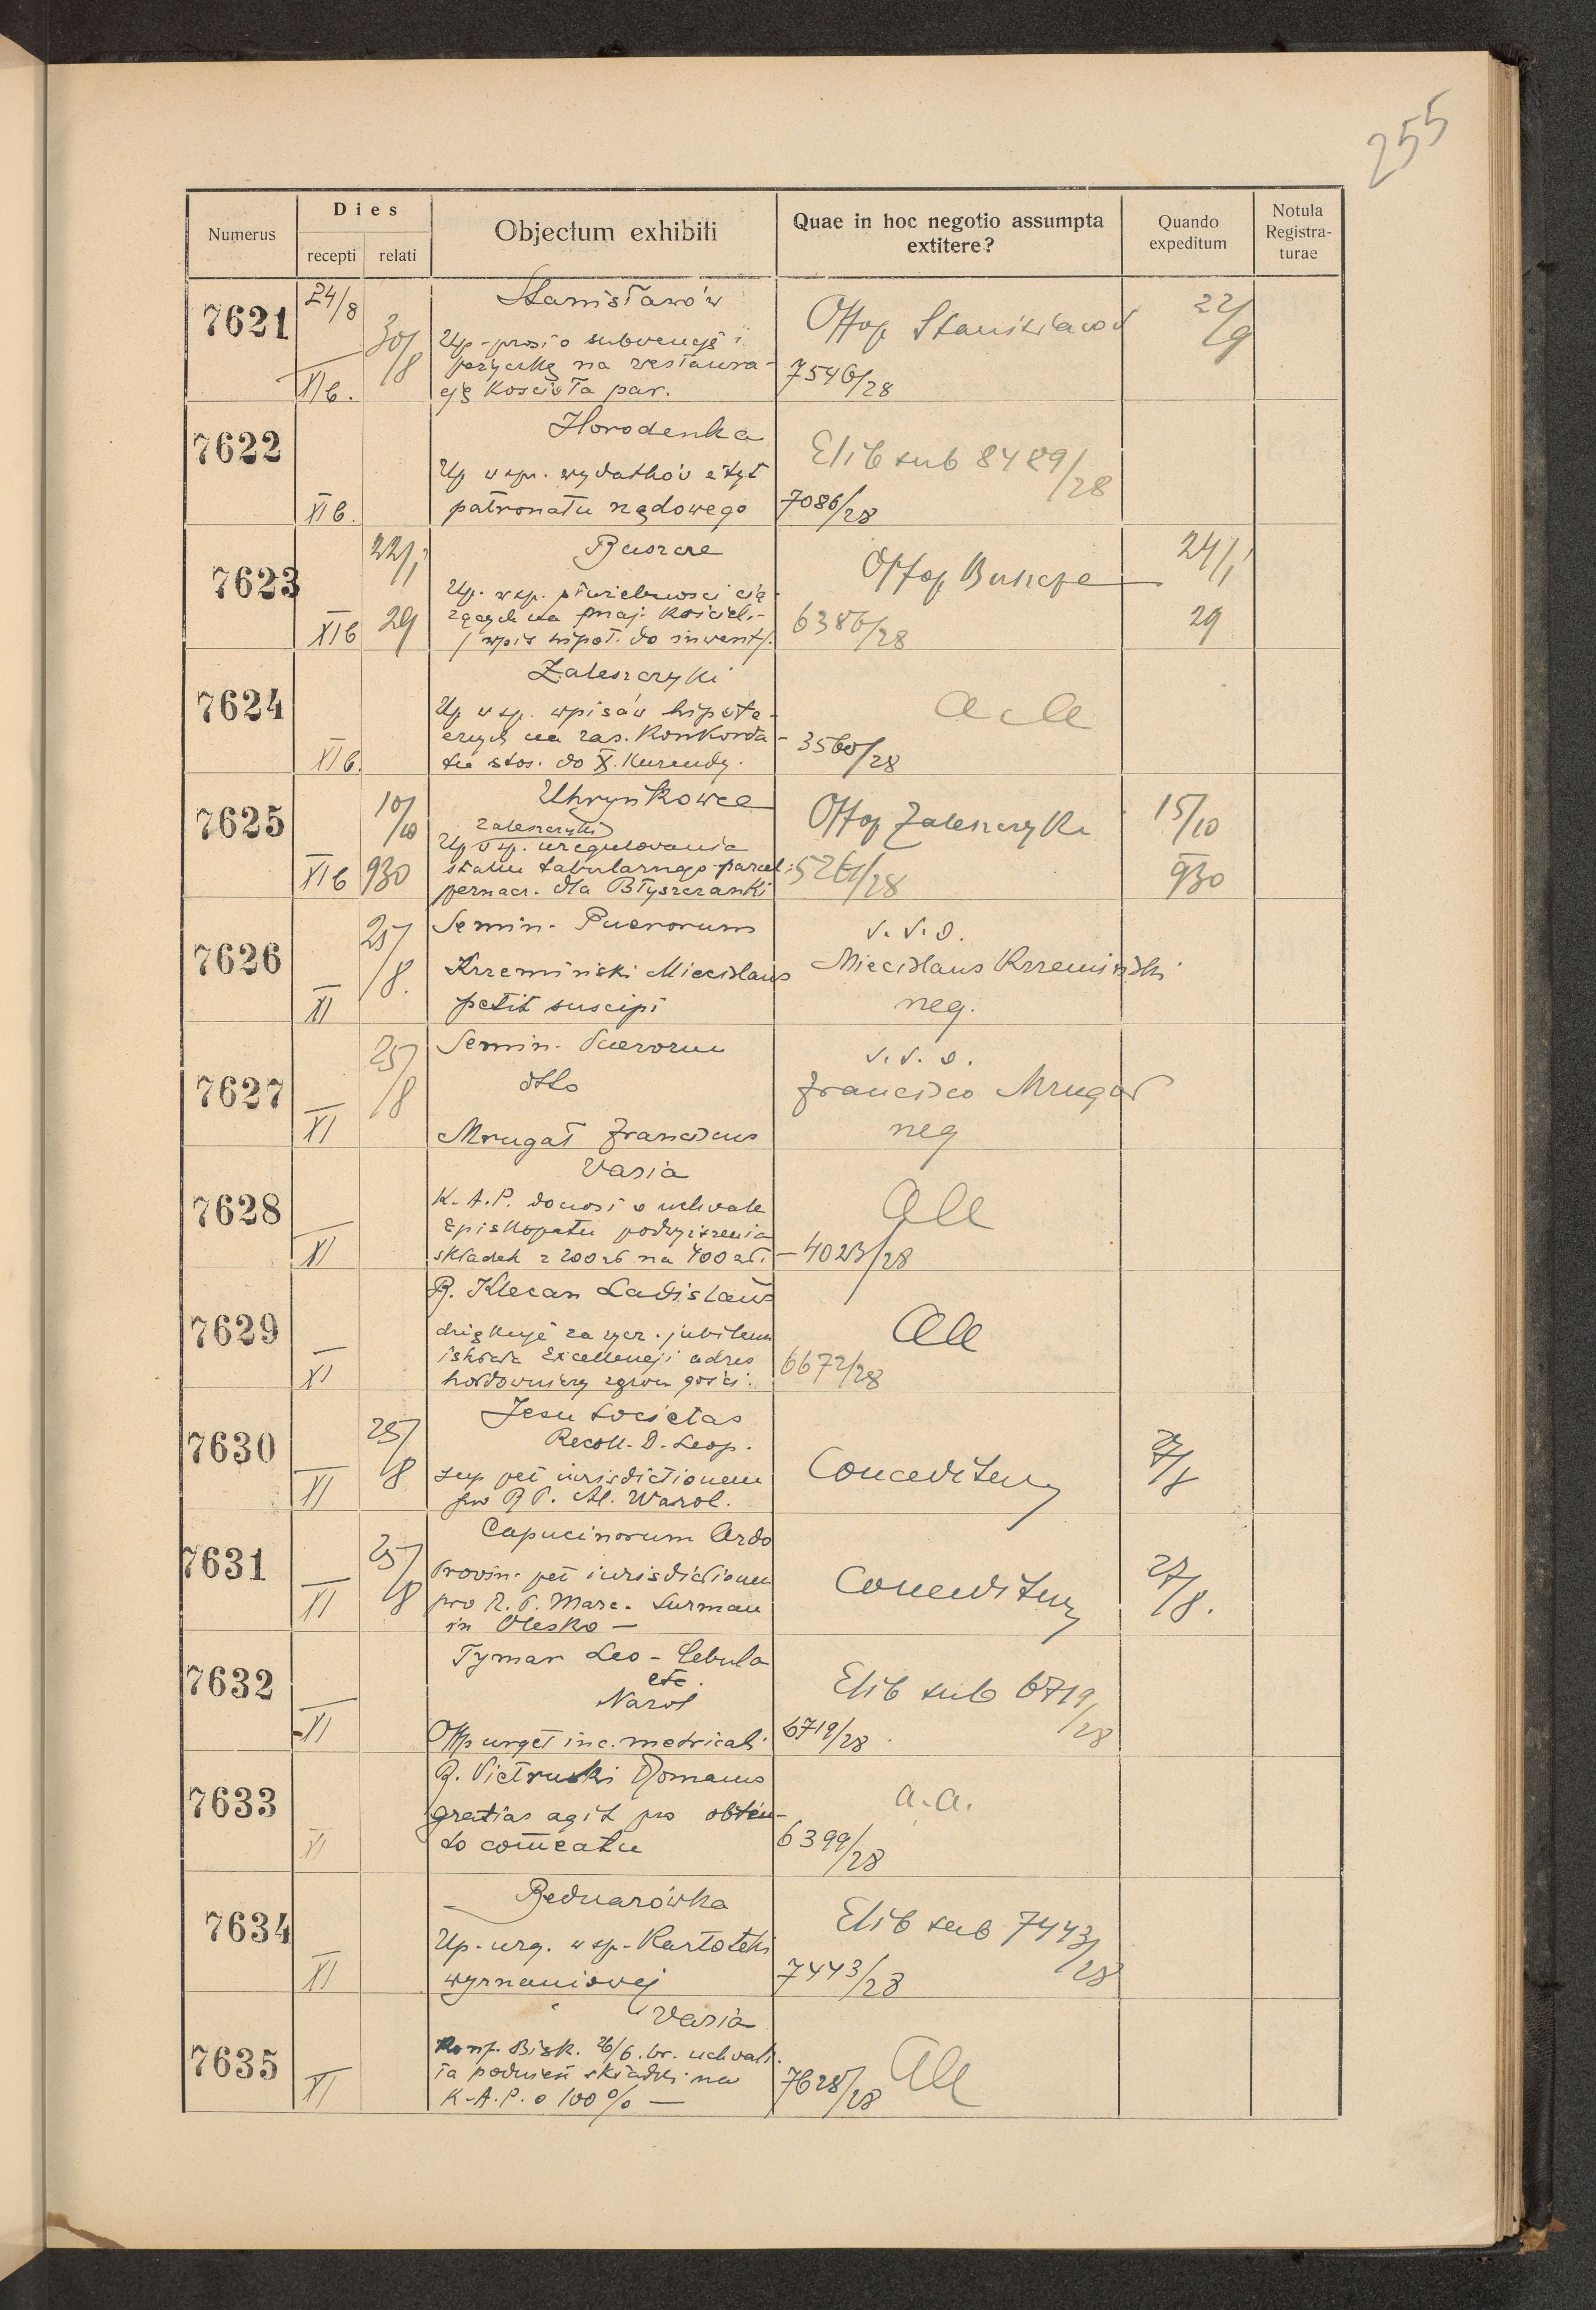 255
Numerus
Dies
recepti
relati
Objectum exhibiti
Quae in hoc negotio assumpta
extitere?
Quando
expeditum
Notula
Registra-
turae
7621
24/8
XIb.
30/8
Stanisławów
Up. prosi o subwencję i
pożyczkę na restaura-
cję Kościoła par.
Offop Stanisławów
7546/28
22/9
7622
XIb.
Horodenka
Up w spr. wydatków z tyt
patronatu rządowego
Elib sub 8489/28
7086/28
7623
XIb
22/1
29
Buszcze
Up. w sp. służebności cią-
żących na maj. Kościel.-
/ wpis hipot. do inwent/.
Offop Buszcze
6386/28
24/1
29
7624
XIb.
Zaleszczyki
Up w sp. wpisów hipote-
cznych na zas. Konkorda-
tu stos. do X. Kurendy.
a cla
3560/28
7625
XIb
10/10
930
Uhryńkowce
Zaleszczyki
Up w sp. uregulowania
stanu tabularnego parcel.
dla Błyszczanki
Offop Zaleszczyki
5261/28
15/10
930
7626
XI
25/8.
Semin. Puerorum
Krzemiński Miecislaus
petit suscipi
V. V. D.
Miecislaus Krzemiński
neg.
7627
XI
25/8
Semin. Puerorum
dtto
Mrugał Franciscus
V. V. D.
Francisco Mrugał
neg
7628
XI
Varia
K.A.P. donosi o uchwale
Episkopatu podwyższenia
składek z 200 zł na 400 zł.
Alle
4023/28
7629
XI
R. Klecan Ladislaus
dziękuje za życz. jubileum
i składa Excellencji adres
hołdowniczy zgrom gości.
Alle
6672/28
7630
XI
25/8
Jesu Societas
Recoll. D. Leop.
sup pet iurisdictionem
pro R P. Al. Warol.
Conceditur
27/8
7631
XI
25/8
Capucinorum Ordo
Provin. pet iurisdictionem
pro R. P. Marc. Surman
in Olesko —
Conceditur
27/8.
7632
XI
Tymar Leo - Cebula
etc.
Narol
Offop urget inc. metrical.
Elib sub 6719/28
6719/28
7633
XI
R. Pietruski Romanus
gratias agit pro obten-
to comeatu
a.a.
6399/28
7634
XI
Bednarówka
Up. urg. w sp. Kartoteki
wyznaniowej
Elib sub 7443/28
7443/28
7635
XI
Varia
Konf. Bisk. 26/6. br. uchwali-
ła podnieść składki na
K.A.P. o 100% —
Alle
7628/28